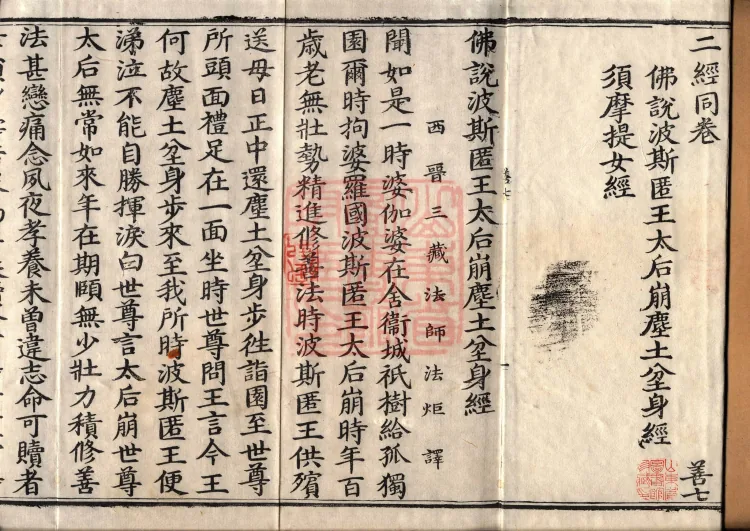 二經同卷
善七
佛說波斯匿王太后崩塵土坌身經
須摩提女經
佛說波斯匿王太后崩塵土坌身經
西晉三藏法師法炬譯
聞如是一時婆伽婆在舍衞城祇樹給孤獨
園爾時拘婆羅國波斯匿王太后崩時年百
歲老無壯勢精進修善法時波斯匿王供殯
送母日正中還塵土坌身步徃詣園至世尊
所頭面禮足在一面坐時世尊問王言今王
何故塵土坌身步來至我所時波斯匿王便
涕泣不能自勝揮淚白世尊言太后崩世尊
太后無常如來年在期頤無少壯力積修善
法甚戀痛念夙夜孝養未曾違志命可贖者